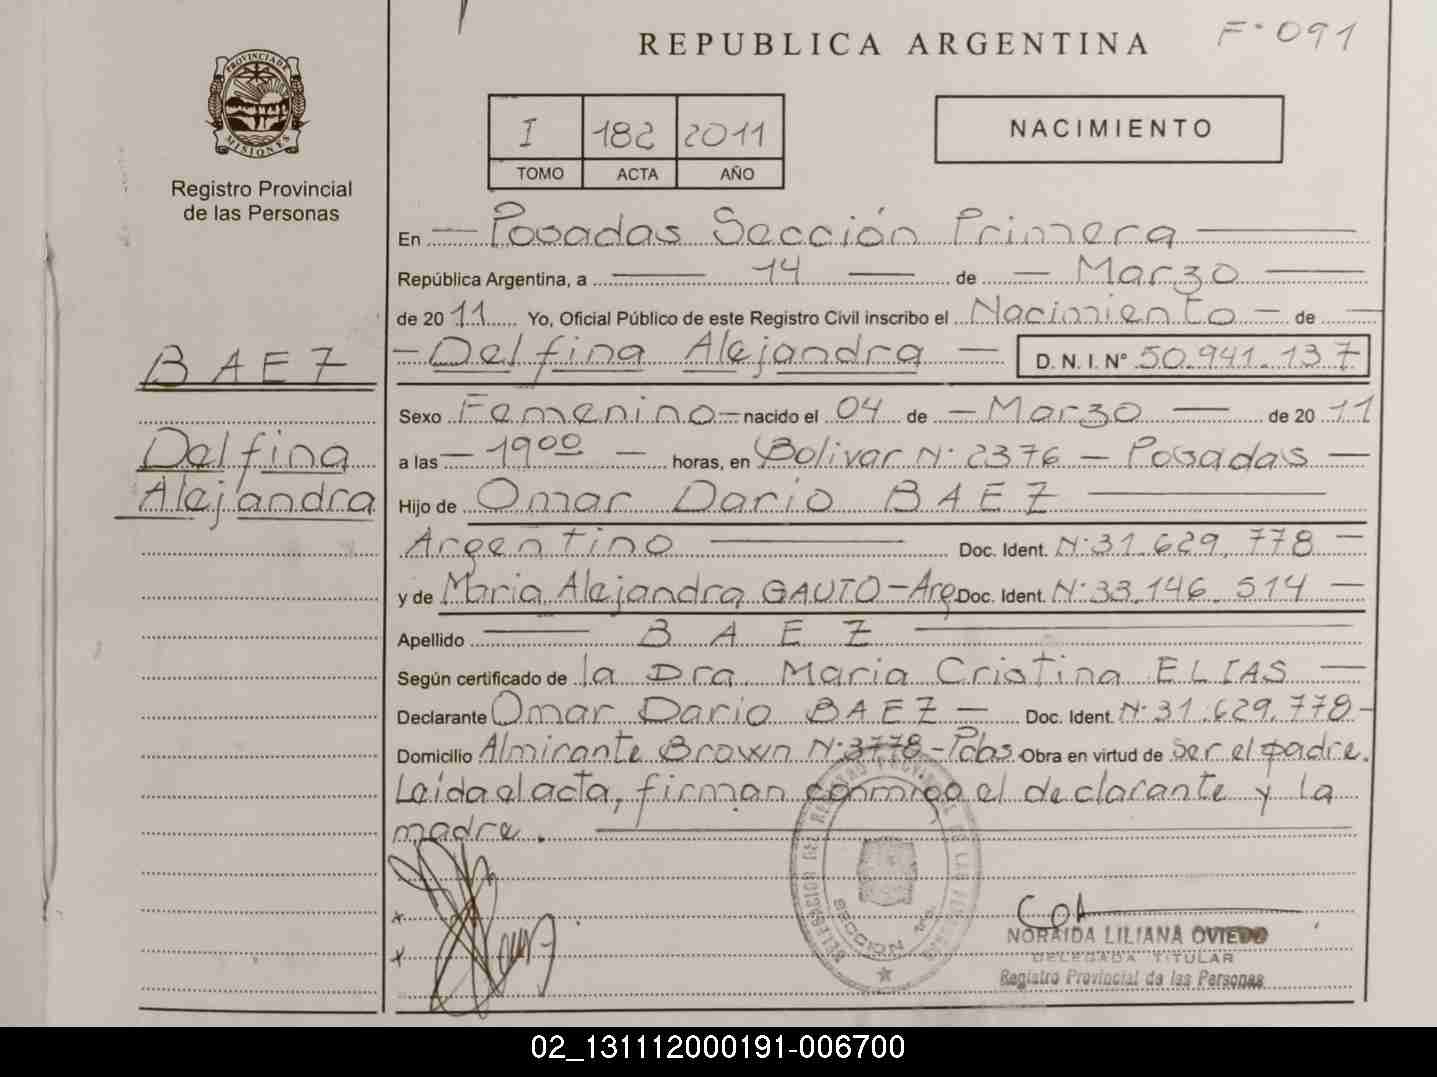 REPUBLICA ARGENTINA
F-091
PROVINCIA DE MISIONES
Registro Provincial
de las Personas
I 182 2011
TOMO ACTA AÑO
NACIMIENTO
En Posadas Sección Primera
República Argentina, a 14 de Marzo
de 2011 Yo, Oficial Público de este Registro Civil inscribo el Nacimiento de
BAEZ
Delfina Alejandra D. N. I. N° 50.941.137
Sexo Femenino nacido el 04 de Marzo de 2011
Delfina
Alejandra
a las 19 00 horas, en Bolivar N° 2376 - Posadas
Hijo de Omar Dario BAEZ
Argentino Doc. Ident. N° 31.629.778
y de Maria Alejandra GAUTO - Arg Doc. Ident. N° 33.146.514
Apellido BAEZ
Según certificado de la Dra. Maria Cristina ELIAS
Declarante Omar Dario BAEZ Doc. Ident. N° 31.629.778
Domicilio Almirante Brown N° 3778 - Pdas. Obra en virtud de ser el padre.
Leída el acta, firman conmigo el declarante y la
madre.
SECCION 1ra.
NORAIDA LILIANA OVIEDO
DELEGADA TITULAR
Registro Provincial de las Personas
02_131112000191-006700